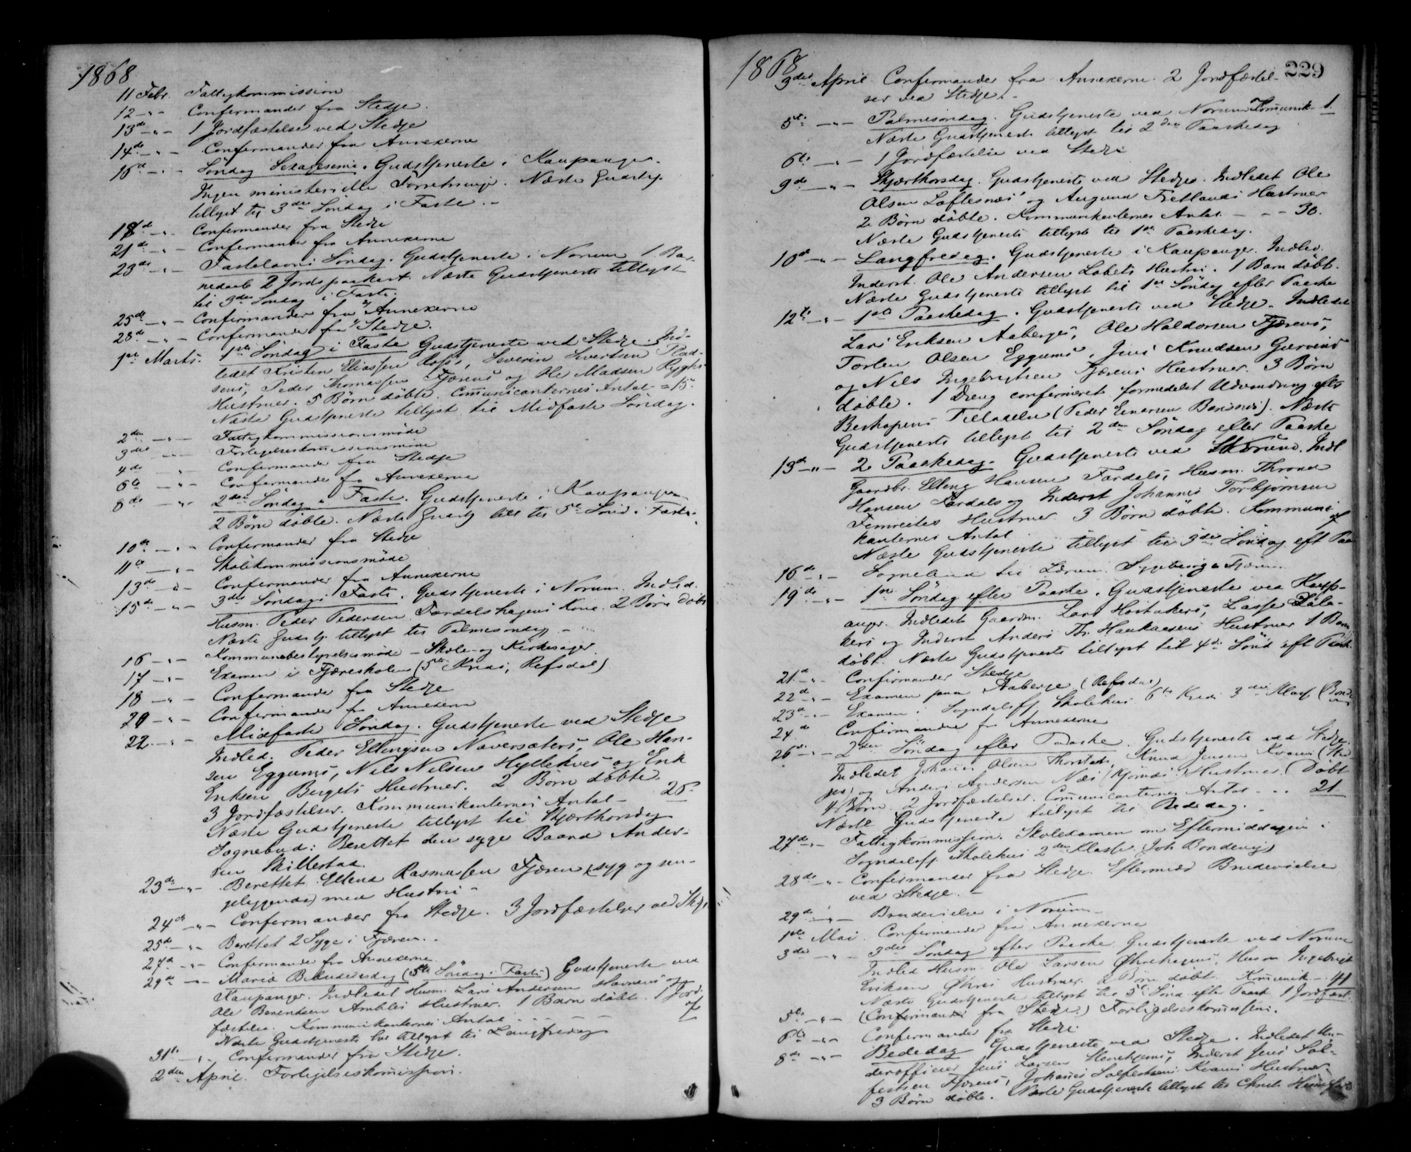 1868
11 Febr. Fattigkommission
12 - „ - Confirmander fra Stedje.
13de - „ - 1 Jordfæstelse ved Stedje
14de - „ - Confirmander fra Annexerne
15de - „ - Søndag Sexagesima. Gudstjeneste i Kaupanger.
Ingen ministerielle Forretninger. Næste Gudstj.
tillyst til 3die Søndag i Faste. -
18de - „ - Confirmander fra Stedje
21de - „ - Confirmander fra Annexerne
23de - „ - Fastelavns Søndag. Gudstjeneste i Norum 1 Bar-
2 Jordspaakast. Næste Gudstjeneste tillyst
til 3die Søndag i Faste.
25de - „ - Confirmander fra Annexerne
28de - „ - Confirmander fra Stedje.
1ste Marts. 1ste Søndag i Faste Gudstjeneste ved Stedje Ind-
ledet Kristen Eliassen Severin Ivertsen
Peder Thomassen Fjærens og Ole Madsen
Hustruer. 5 Børn døbte. Communicanternes Antal = 15.
Næste Gudstjeneste tillyst til Midfaste Søndag.
2den - „ - Fattigkommissionsmøde
3die - „ - Forligelseskommissionsmøde
4de - „ - Confirmander fra Stedje
6te - „ - Confirmander fra Annexerne
8de - „ - 2den Søndag i Faste. Gudstjeneste i Kaupanger
2 Børn døbte. Næste Gudstj till. til 5te Sønd. i Faste.
10de - „ - Confirmander fra Stedje
11te - „ - Skolekommissionsmøde
13de - „ - Confirmander fra Annexerne
15de - „ - 3die Søndag i Faste. Gudstjeneste i Norum. Indled.
Husm. Peder Pedersen Kone. 2 Børn døbt
Næste Gudstj. tillyst til Palmesøndag -
16 - „ - Kommunebestyrelsesmøde - Skole- og Kirkesager.
17 - „ - Examen i Fjæreskolen (5te Kreds, Refsdal)
18 - „ - Confirmander fra Stedje
20 - „ - Confirmander fr Annexerne
22 - „ - Midfaste Søndag. Gudstjeneste ved Stedje
Indled. Peder Ellingsen Navarsæters, Ole Han-
sen Eggums, Nils Nilsen Hyllekves og Erik
Eriksen Bergets Hustruer. 2 Børn døbte.
3 Jordfæstelser. Kommunikanternes Antal - 26.
Næste Gudstjeneste tillyst til Skjærthorsdag
Sognebud: Berettet den syge Baard Anders-
sen Skillestad.
23de - „ - Berettet Ellend Rasmussen Fjæren (syg og sen-
geliggende) med Hustru -
24de - „ - Confirmander fra Stedje. 3 Jordfæstelser ved Stedje
25de - „ - Berettet 2 Syge i Fjæren.
27de - „ - Confirmander fra Annexerne.
29de - „ - Maria Bebudelsesdag (5te Søndag i Faste) Gudstjeneste ved
Kaupanger. Indledet Husm. Lars Andersen og
Ole Berentsen Amblis Hustruer. 1 Barn døbt. 1 Jord-
fæstelse. Kommunikanternes Antal
Næste Gudstjeneste tillyst til Langfredag
31te - „ - Confirmander fra Stedje.
2den April. Forligelseskommission.
1868
229
3die April Confirmander fra Annexerne. 2 Jordfæstel-
ser ved Stedje. -
5te - „ - Palmesøndag. Gudstjeneste ved Norum Komunik. 1
Næste Gudstjeneste tillyst til 2den Paaskedag
6te - „ - 1 Jordfæstelse ved Stedje
9de - „ - Skjærthorsdag. Gudstjeneste ved Stedje. Indledet Ole
Olsen Loftesnæs og Augund Fretlands Hustruer
2 Børn døbte. Kommunikanternes Antal - - - 30.
Næste Gudstjeneste tillyst til 1ste Paaskedag.
10de - „ - Langfredag. Gudstjeneste i Kaupanger. Indled.
Inderst. Ole Andersen Hustru. 1 Barn døbt.
Næste Gudstjeneste tillyst til 1ste Søndag efter Paaske
12te - „ - 1ste Paaskedag. Gudstjeneste ved Stedje. Indledet
Lars Eriksen Aaberge, Ole Haldorsen Fjærens,
Torlen Olsen Eggums, Jens Knudsen
og Nils Ingebrigtsen Fjærens Hustruer. 3 Børn
døbte. 1 Dreng confirmeret formedelst Udvandring efter
Biskopens Tilladelse (Peder Einarsen). Næste
Gudstjeneste tillyst til 2den Søndag efter Paaske
13de - „ - 2 Paaskedag. Gudstjeneste ved Norum. Indl
Gaardbr. Elling Hansen Fardals, Husm. Thrond
Hansen Fardals og Inderst Johannes Torbjørnsen
Hustruer. 3 Børn døbte. Kommuni-
kanternes Antal
Næste Gudstjeneste tillyst til 3die Søndag eft Paa
16de - „ - Sognebud til
19de - „ - 1ste Søndag efter Paaske. Gudstjeneste ved Kaup-
anger. Indledet Gaardm. Lars Lasse
og Inderst Anders Th. Haukaasens Hustruer 1 Barn
døbt. Næste Gudstjeneste tillyst til 4de Sønd eft Paask
21de - „ - Confirmander Stedje
22de - „ - Examen paa Aaberge (Refsdal)
23de - „ - Examen i Sogndalsfj. Skolehus 6te Kreds 3die Klasse
24de - „ - Confirmander fr Annexerne
26de - „ - 2den Søndag efter Paaske. Gudstjeneste ved Stedje.
Indledet Johannes Olsen Knud Jensen Kvams
og Anders Andersen Næs Hustruer. Døbt
4 Børn. 2 Jordfæstelser. Communicanternes Antal - - - 21
Næste Gudstjeneste tillyst til Bededag.
27de - „ - Fattigkommission. Skoleexamen om Eftermiddagen i
Sogndalsfj Skolehus 2den Klasse
28de - „ - Confirmander fra Stedje. Eftermid Brudevielse
ved Stedje. -
29de - „ - Brudevielse i Norum -
1ste Mai. Confirmander fra Annexerne
3die - „ - 3die Søndag efter Paaske Gudstjeneste ved Norum
Indled Husm Ole Larsen Husm Ingebrigt
Eriksen Hustruer. 2 Børn døbt. Komunik - 41
Næste Gudstjeneste tillyst til 5te Sønd efter Paask 1 Jordfæst.
5te - „ - (Confirmander fra Stedje) Forligelseskomission.
6te - „ - Confirmander fra Stedje
8de - „ - Bededag Gudstjeneste ved Stedje. Indledet Un-
derofficier Jens Larsen Inderst Jens Sol-
festsen Johannes Solfestsens Kvams Hustruer
3 Børn døbte. Næste Gudstjeneste tillyst til Christi Himmelfart